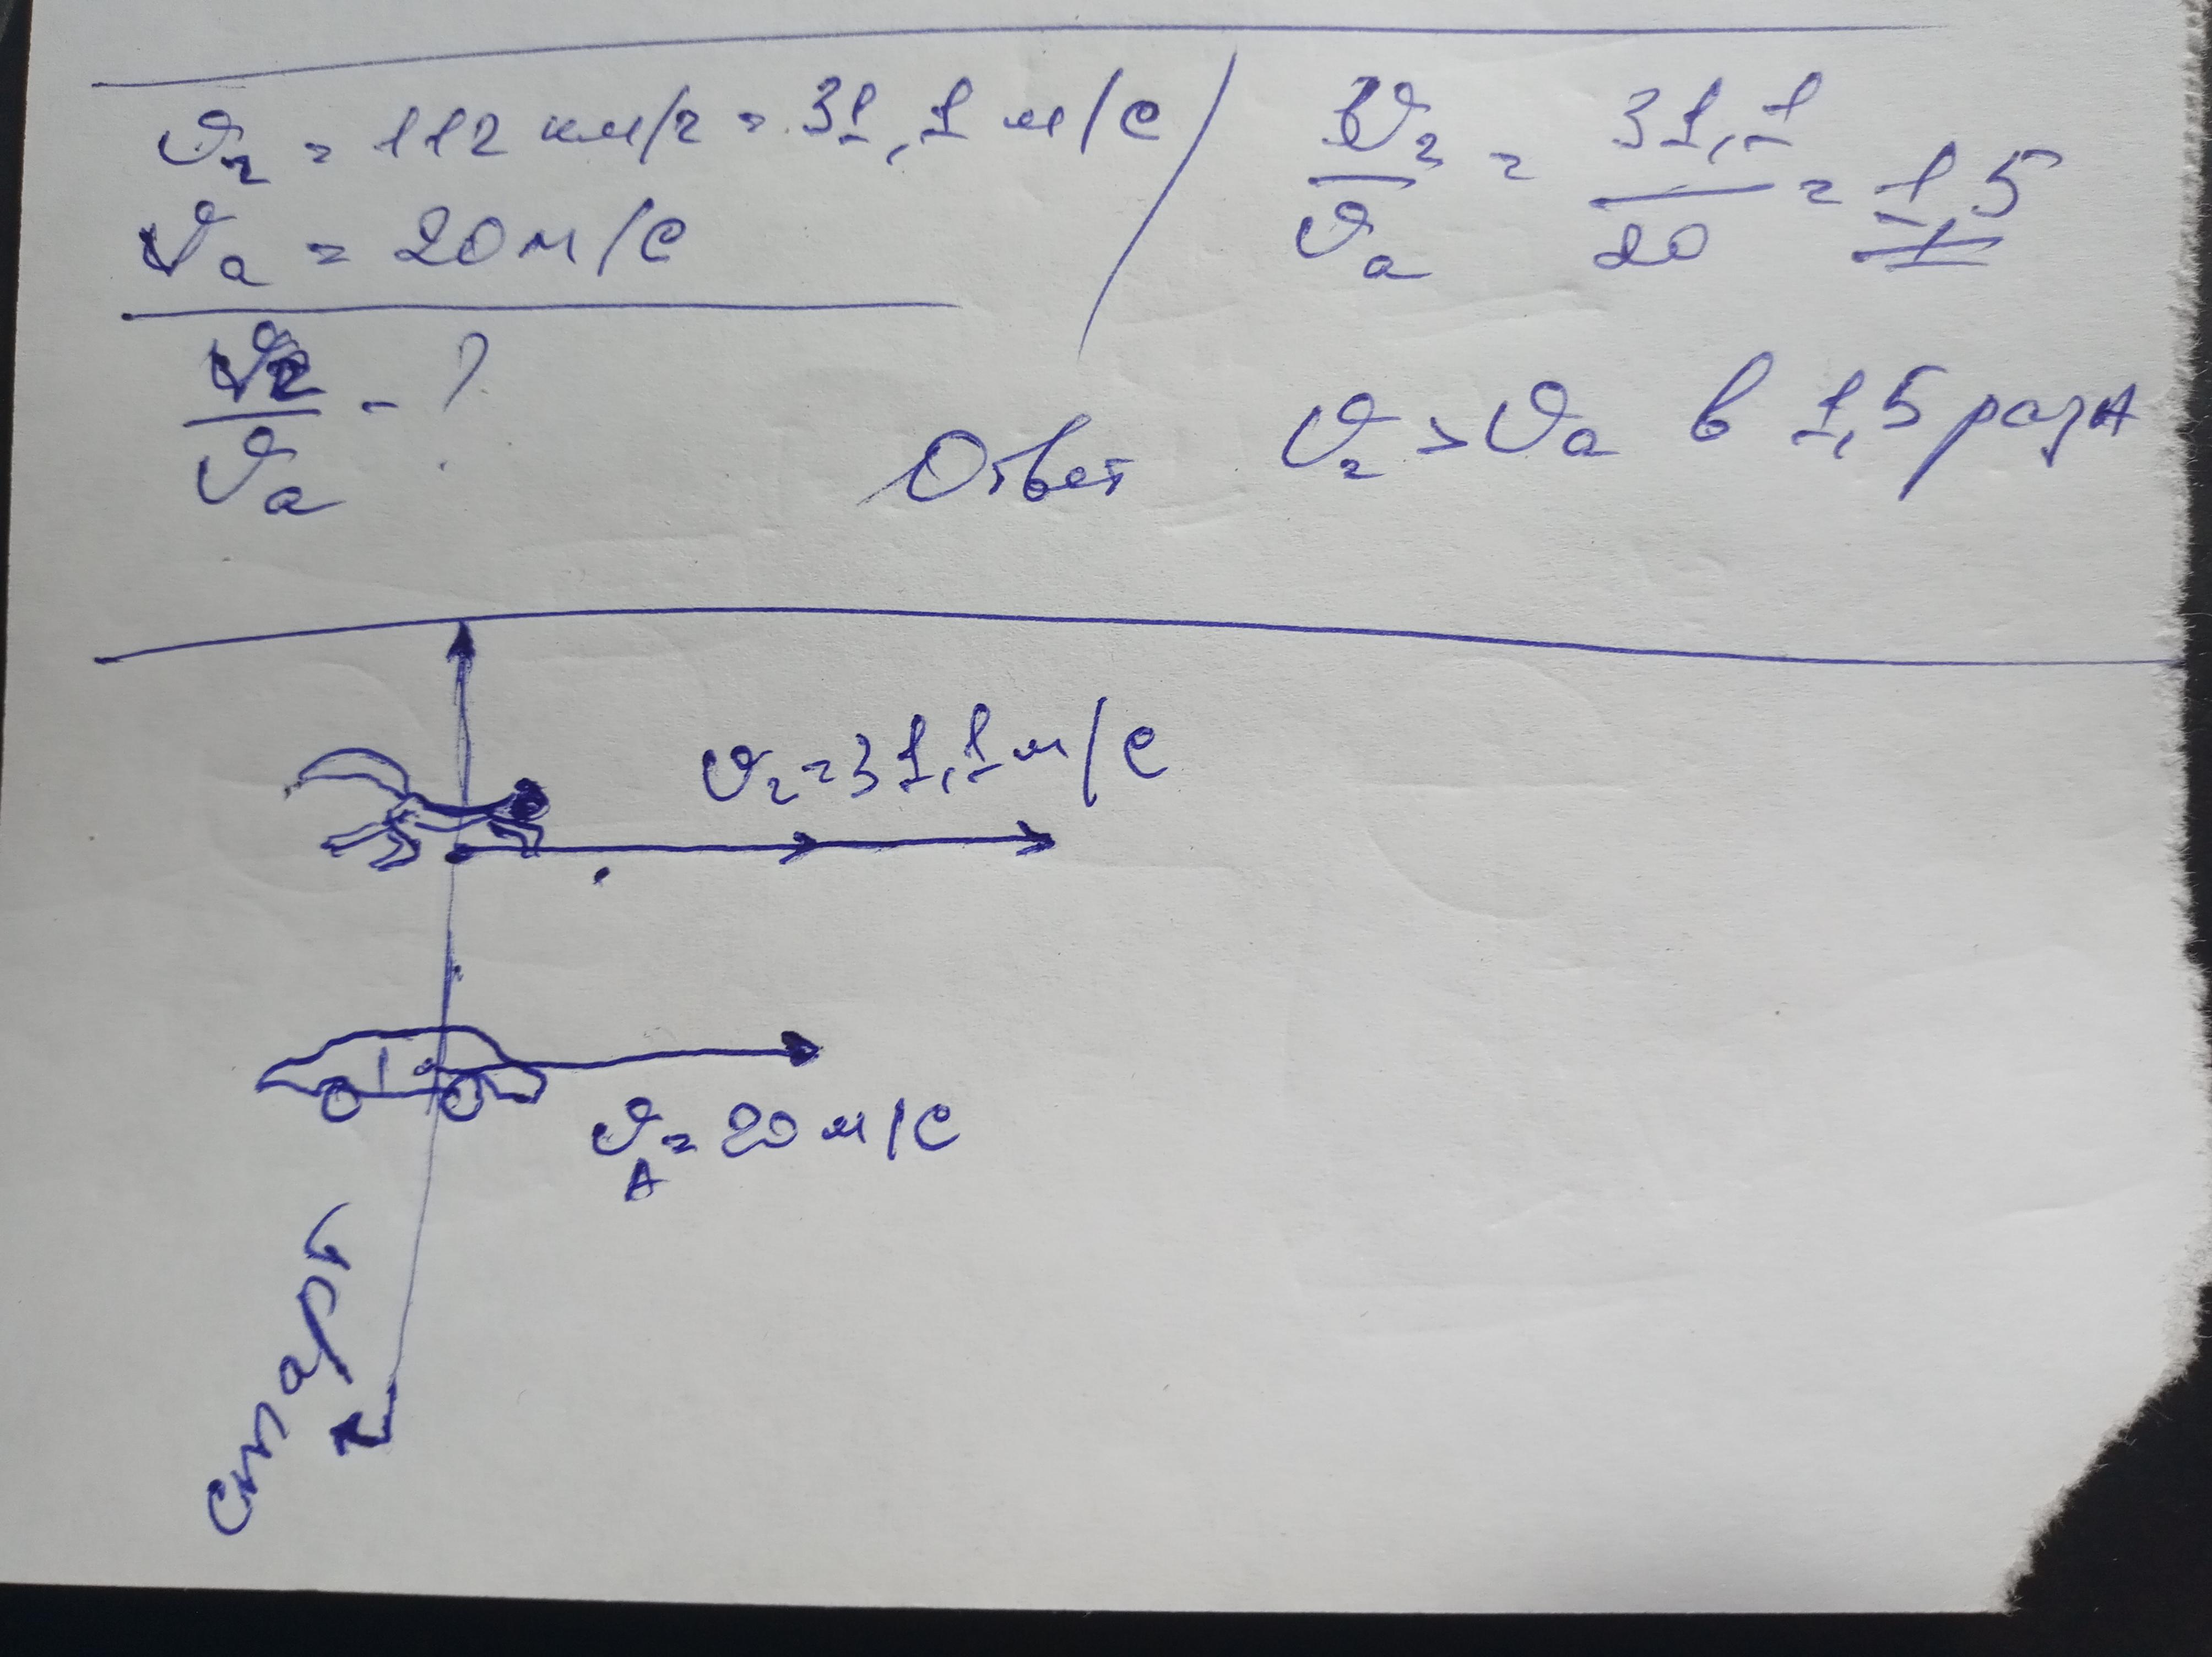 υг = 112 км/г = 31,1 м/с
υа = 20 м/с
υг/υа - ?
υг/υа = 31,1/20 = 1,5
Ответ υг > υа в 1,5 раза
υг = 31,1 м/с
υА = 20 м/с
старт